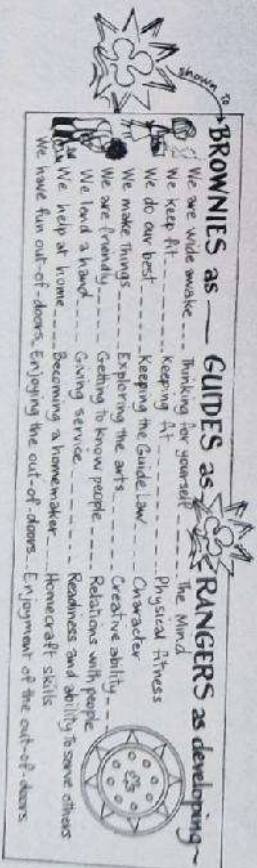 shown to
BROWNIES as — GUIDES as RANGERS as developing~
We are wide awake --- Thinking for yourself ------ The Mind
We keep fit ------ Keeping fit ------ Physical fitness
We do our best ------ Keeping the Guide Law ---- Character
We make things ------ Exploring the arts ---- Creative ability ---
We are friendly ----- Getting to know people ---- Relations with people
We lend a hand ---- Giving service ------ Readiness and ability to serve others
We help at home ----- Becoming a homemaker ---- Homecraft skills
We have fun out-of-doors. Enjoying the out-of-doors --- Enjoyment of the out-of-doors.